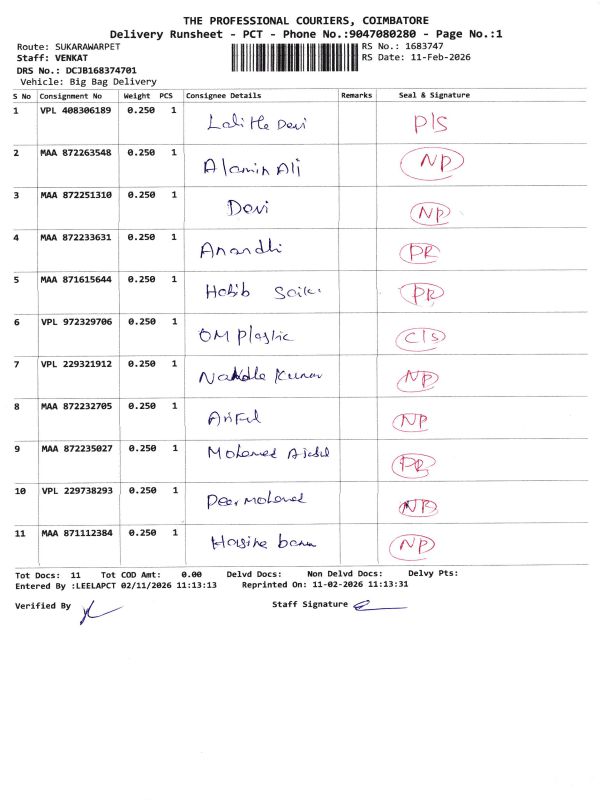 THE PROFESSIONAL COURIERS, COIMBATORE
Delivery Runsheet - PCT - Phone No.:9047080280 - Page No.:1
Route: SUKARAWARPET RS No.: 1683747
Staff: VENKAT RS Date: 11-Feb-2026
DRS No.: DCJB168374701
Vehicle: Big Bag Delivery
S No Consignment No Weight PCS Consignee Details Remarks Seal & Signature
1 VPL 408306189 0.250 1 Devi P/S
2 MAA 872263548 0.250 1 Alamin Ali NP
3 MAA 872251310 0.250 1 Devi NP
4 MAA 872233631 0.250 1 Anandhi PR
5 MAA 871615644 0.250 1 Habib PR
6 VPL 972329706 0.250 1 OM Plastic C/S
7 VPL 229321912 0.250 1 Kumar NP
8 MAA 872232705 0.250 1 NP
9 MAA 872235027 0.250 1 Mohamed PR
10 VPL 229738293 0.250 1 Peer Mohamed
11 MAA 871112384 0.250 1 banu NP
Tot Docs: 11 Tot COD Amt: 0.00 Delvd Docs: Non Delvd Docs: Delvy Pts:
Entered By :LEELAPCT 02/11/2026 11:13:13 Reprinted On: 11-02-2026 11:13:31
Verified By Staff Signature